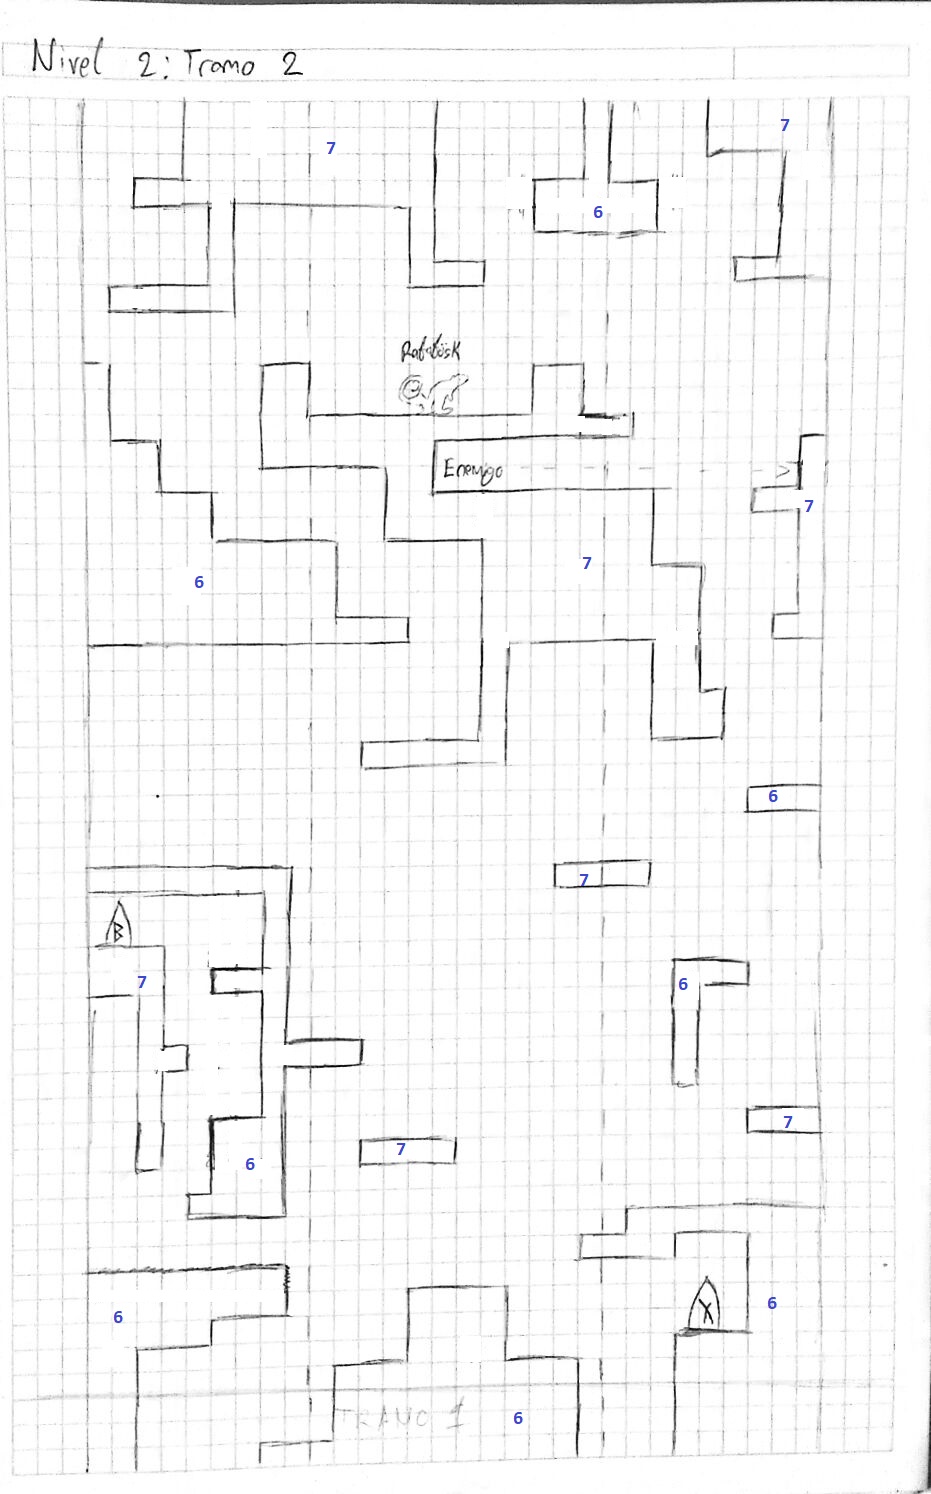 Nivel 2: Tramo 2
7
7
6
Ratatösk
Enemigo
7
7
6
6
7
B
7
6
7
7
6
6
X
6
TRAMO 1
6